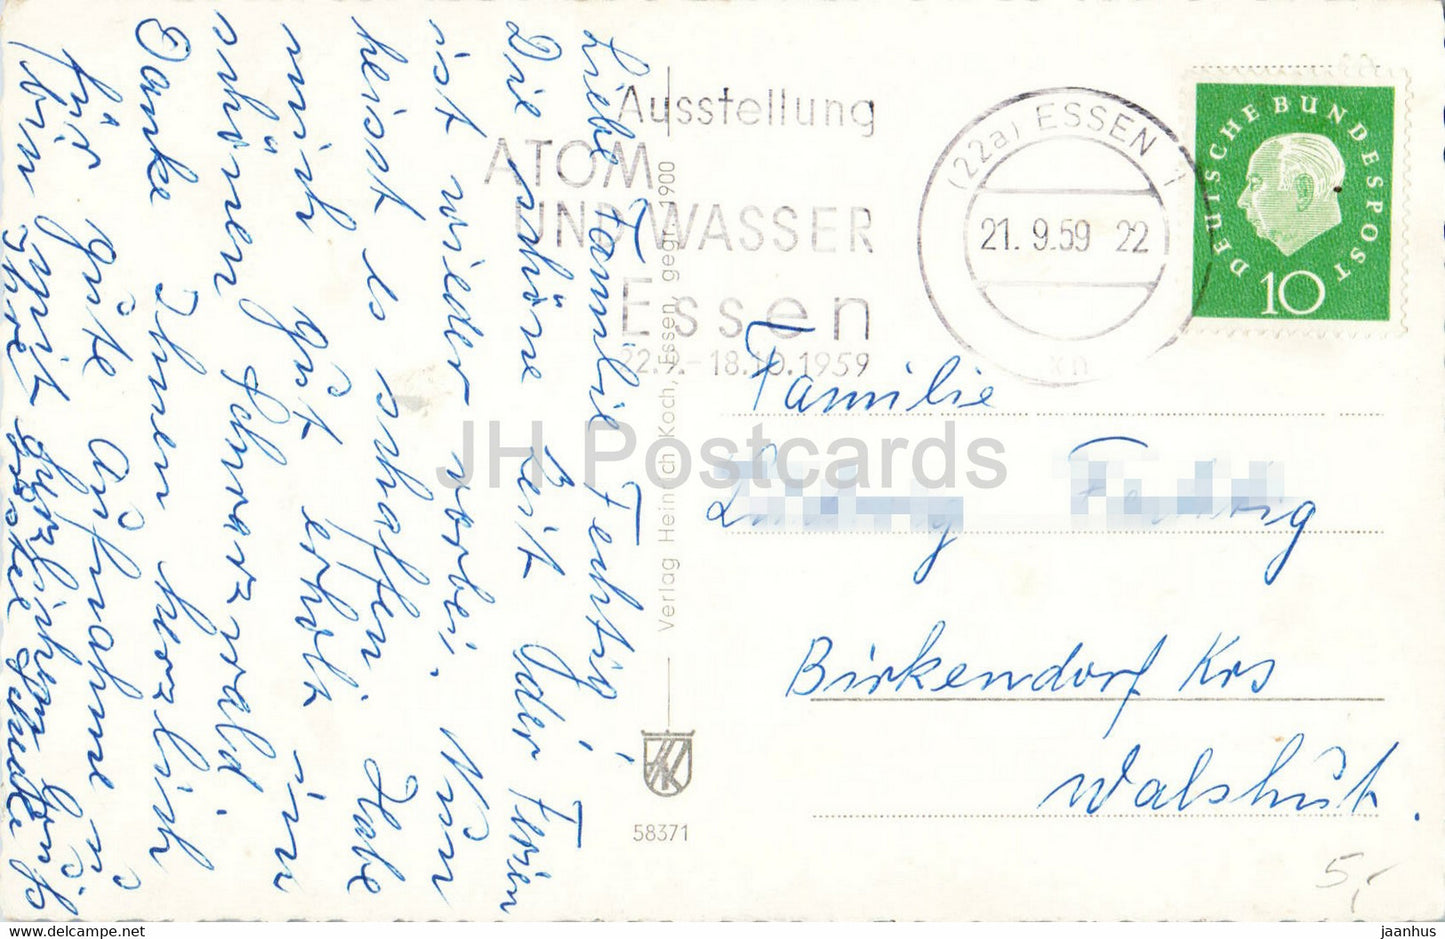 Liebe Familie Fechtig!
Die schöne Zeit der Ferien
ist wieder vorbei. Nun
heisst es schaffen. Habe
mich gut erholt im
schönen Schwarzwald.
Danke Ihnen herzlich
für gute Aufnahme u.
bin mit herzlichem Gruß
Ihre
Ausstellung
ATOM
UND WASSER
Essen
22.9.-18.10.1959
(22a) ESSEN 1
21. 9.59 22
xn
DEUTSCHE BUNDESPOST
10
Verlag Heinrich Koch, Essen, gegr. 1900
58371
Familie
Birkendorf Krs
Walshut.
5,-
JH Postcards
www.delcampe.net
jaanhus